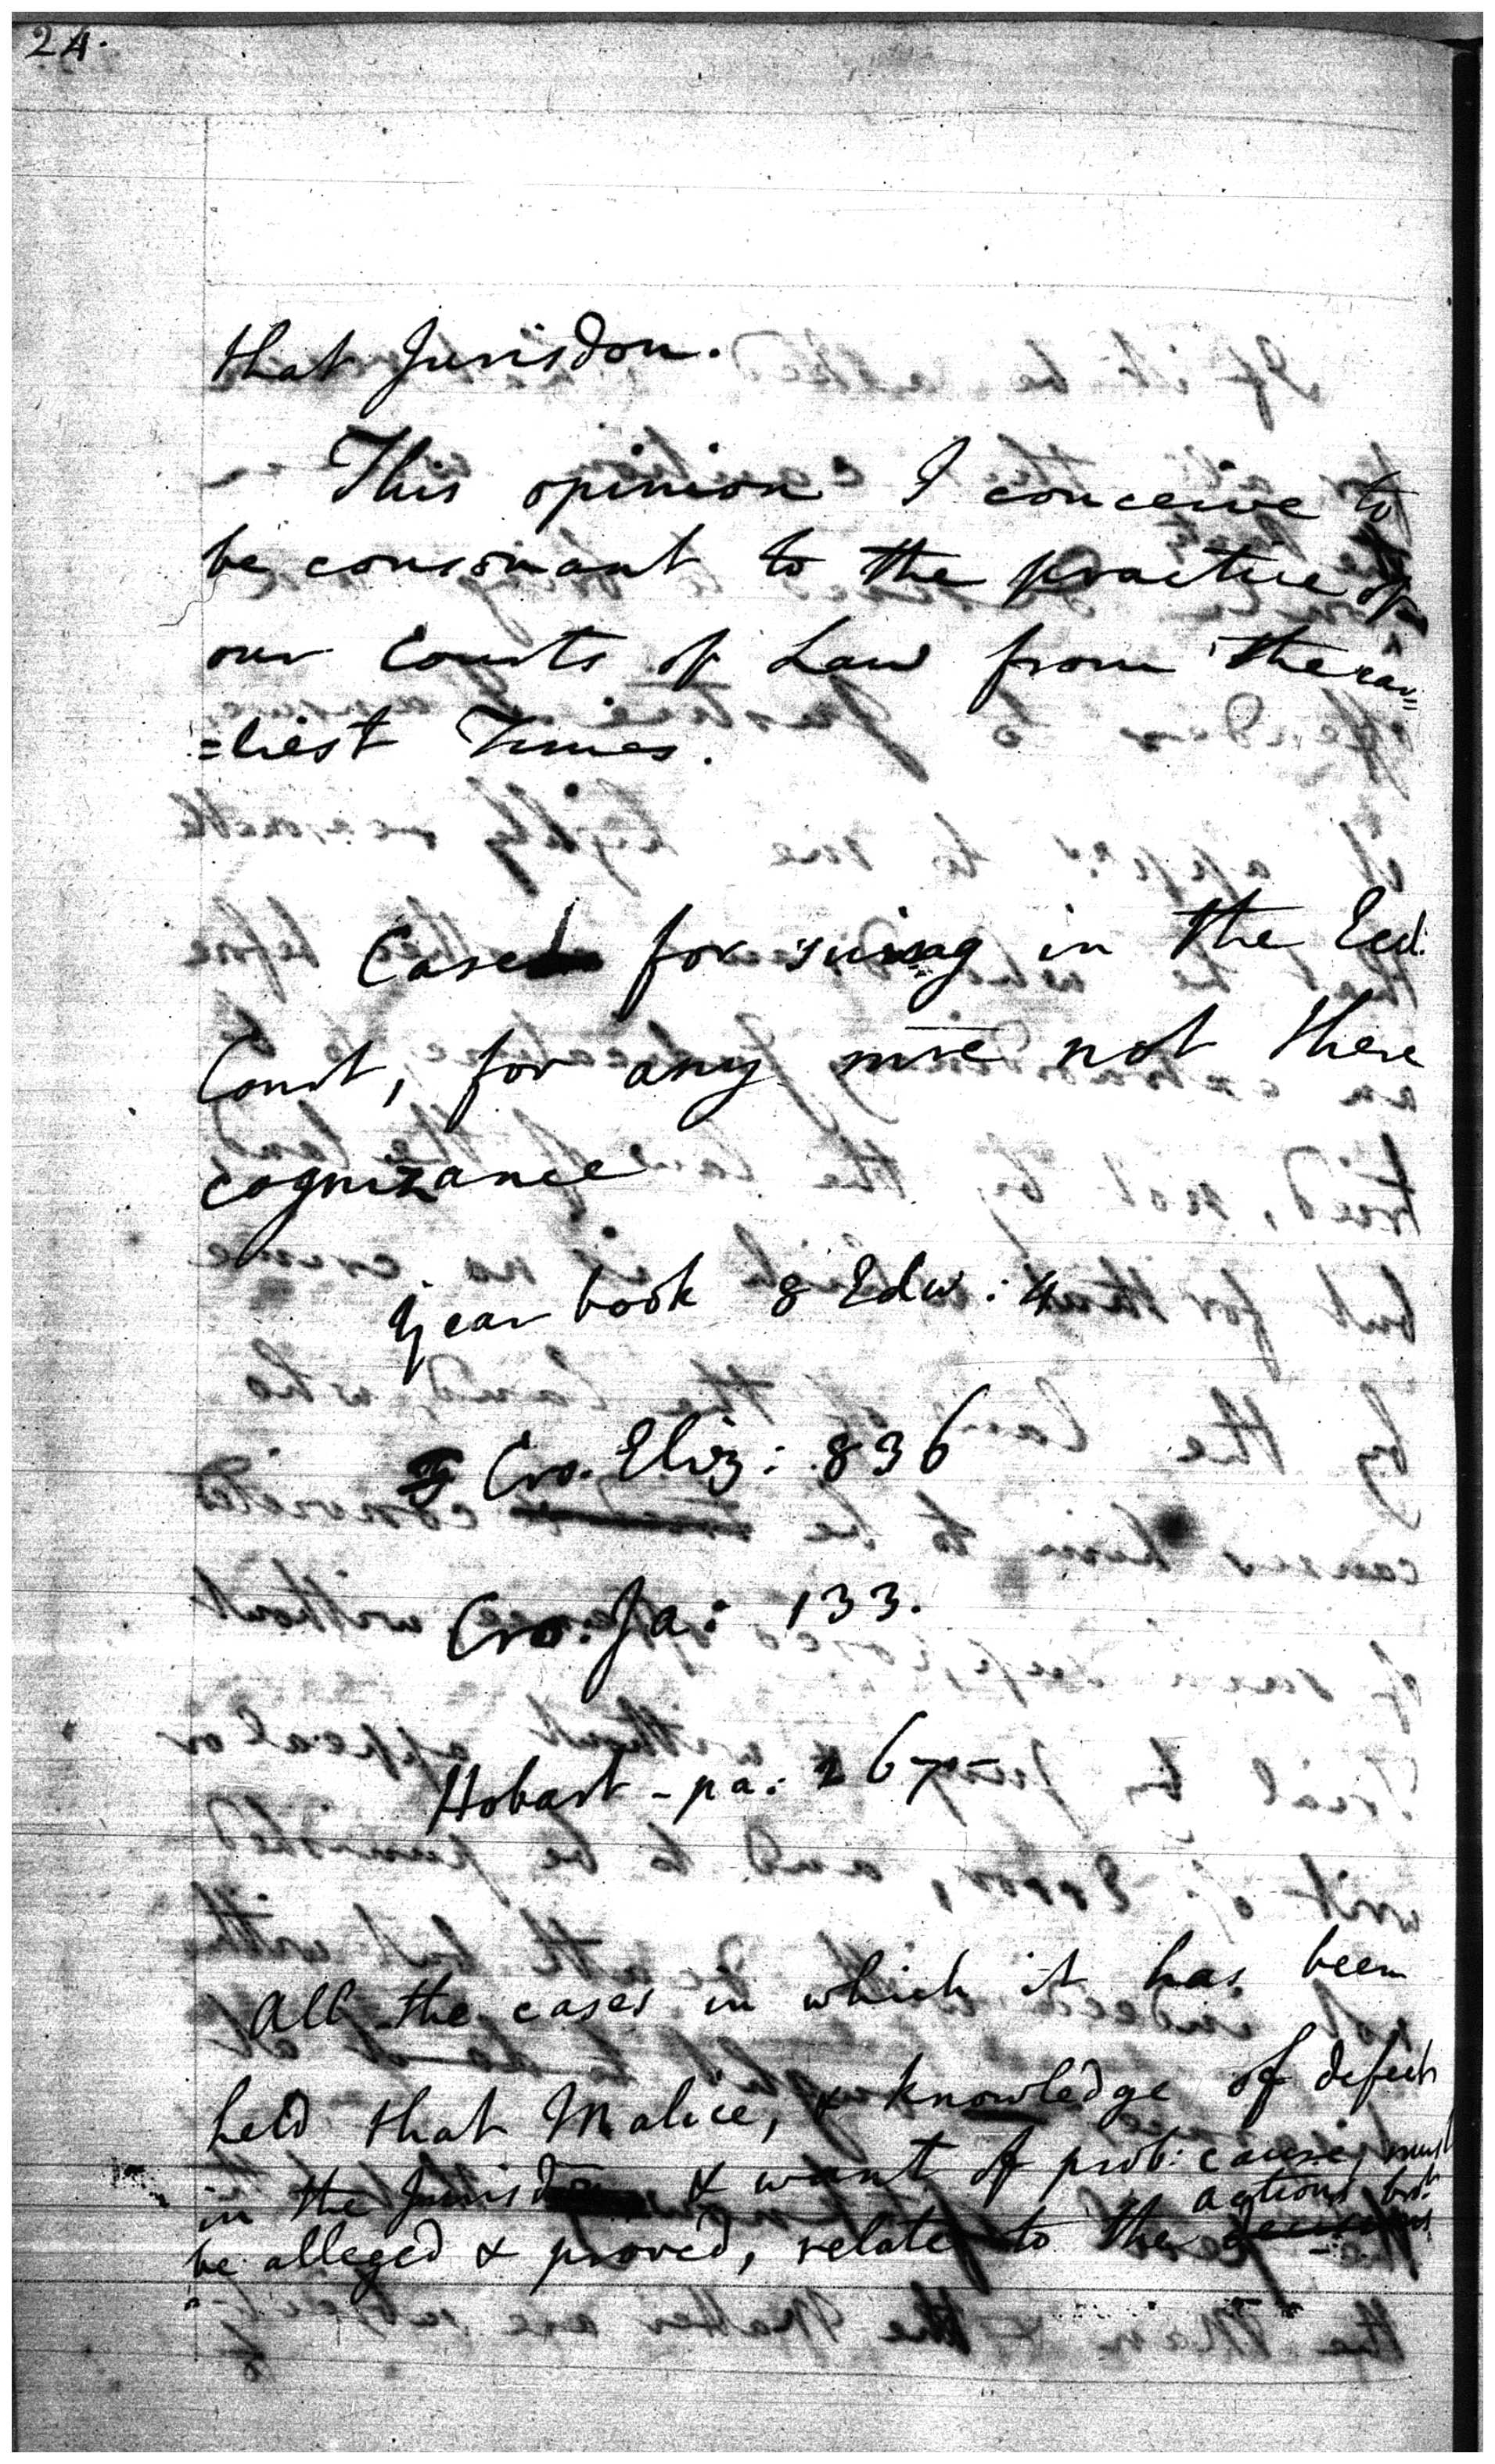 24.
that Jurisdon.
This opinion I conceive to
be consonant to the practice of
our Courts of Law from the ear=
=liest Times.
Case for suing in the Eccl:
Court, for any mre not there
cognizance
Year book 8 Edw: 4
Cro. Eliz: 836
Cro. Ja: 133.
Hobart - pa: 267
All the cases in which it has been
held that Malice, & knowledge of defect
in the Jurisdon & want of prob: cause, must
actions brot
be alleged & proved, relate to the